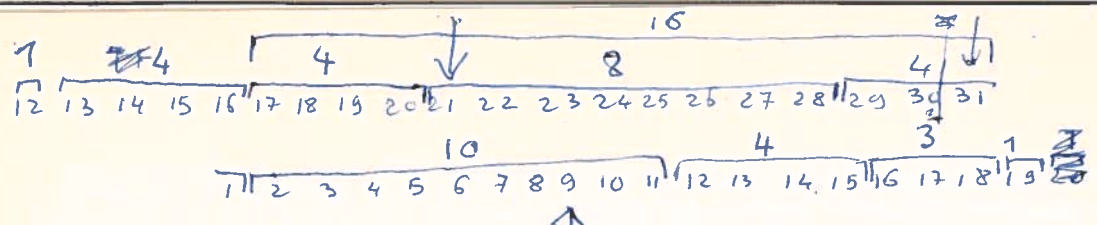 16
1 4 4 8 4
12 13 14 15 16 17 18 19 20 21 22 23 24 25 26 27 28 29 30 31
10 4 3 1
1 2 3 4 5 6 7 8 9 10 11 12 13 14. 15 16 17 18 19